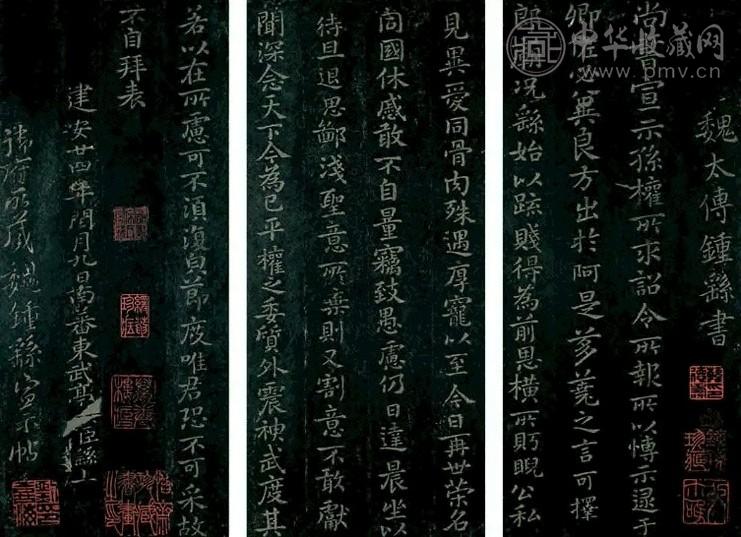 中华收藏网
www.pmv.cn
魏太傅鍾繇書
尚書宣示孫權所求詔令所報所以博示逮于
卿佐必冀良方出於阿是芻蕘之言可擇
郎廟況繇始以疏賤得為前恩橫所盻睨公私
見異愛同骨肉殊遇厚寵以至今日再世榮名
同國休慼敢不自量竊致愚慮仍日達晨坐以
待旦退思鄙淺聖意所棄則又割意不敢獻
聞深念天下今為已平權之委質外震神武度其
若以在所慮可不須復貞節度唯君恐不可采故
不自拜表
建安廿四年閏月九日南蕃東武亭臣繇上
所藏魏鍾繇宣示帖